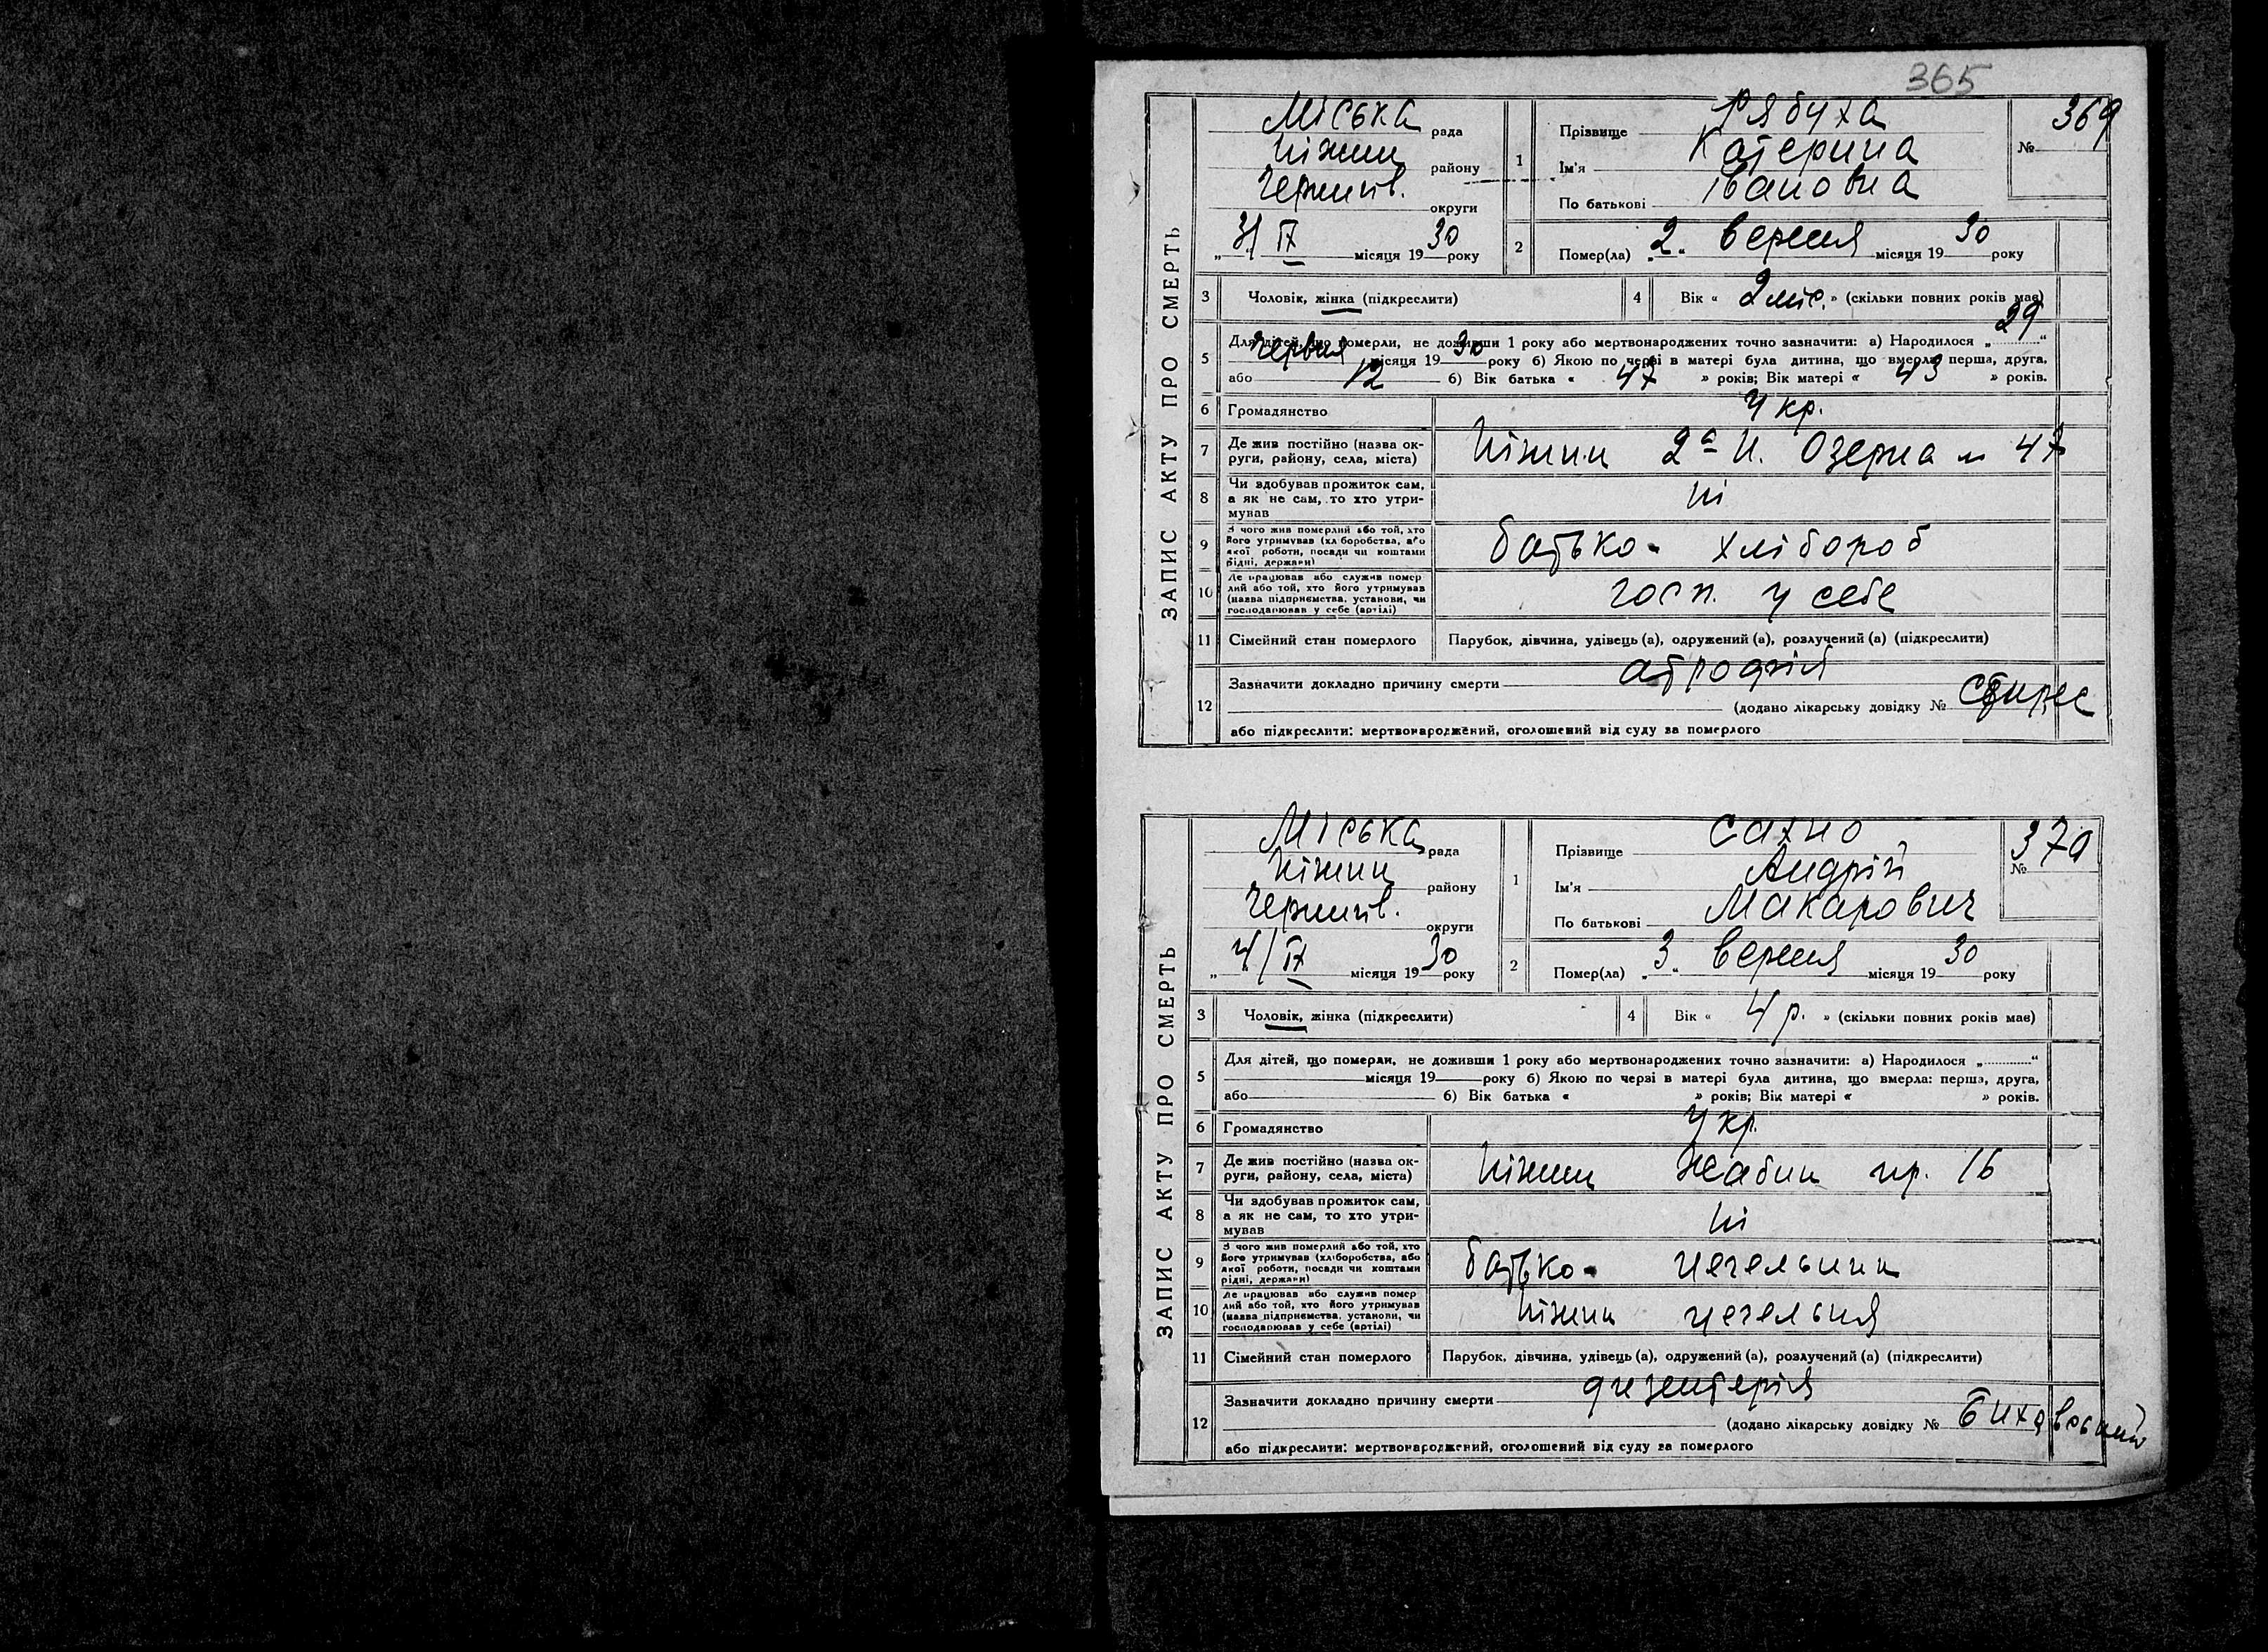 365
ЗАПИС АКТУ ПРО СМЕРТЬ
Міська рада
Ніжин району
Черниг. округи
„3/ ІХ місяця 1930 року
1 Прізвище Рябуха
Ім'я Катерина
По батькові Івановна
№ 369
2 Помер(ла) „2“ вересня місяця 1930 року
3 Чоловік, жінка (підкреслити)
4 Вік « 2 міс. » (скільки повних років має)
5 Для дітей, що померли, не доживши 1 року або мертвонароджених точно зазначити: а) Народилося „29“
червня місяця 1930 року б) Якою по черзі в матері була дитина, що вмерла: перша, друга,
або 12 б) Вік батька « 47 » років; Вік матері « 43 » років.
6 Громадянство укр.
7 Де жив постійно (назва ок-
руги, району, села, міста) Ніжин 2а Н. Озерна 47
8 Чи здобував прожиток сам,
а як не сам, то хто утри-
мував ні
9 З чого жив померлий або той, хто
його утримував (хліборобства, або
якої роботи, посади чи коштами
рідні, держави) батько - хлібороб
10 Де працював або служив помер
лий або той, хто його утримував
(назва підприємства, установи, чи
господарював у себе (артілі) госп. у себе
11 Сімейний стан померлого Парубок, дівчина, удівець (а), одружений (а), розлучений (а) (підкреслити)
12 Зазначити докладно причину смерти атрофія
(додано лікарську довідку №
або підкреслити: мертвонароджений, оголошений від суду за померлого
ЗАПИС АКТУ ПРО СМЕРТЬ
Міська рада
Ніжин району
Черниг. округи
„4/ ІХ місяця 1930 року
1 Прізвище Сахно
Ім'я Андрій
По батькові Макарович
№ 370
2 Помер(ла) „3“ вересня місяця 1930 року
3 Чоловік, жінка (підкреслити)
4 Вік « 4 р. » (скільки повних років має)
5 Для дітей, що померли, не доживши 1 року або мертвонароджених точно зазначити: а) Народилося „ “
місяця 19 року б) Якою по черзі в матері була дитина, що вмерла: перша, друга,
або б) Вік батька « » років; Вік матері « » років.
6 Громадянство укр.
7 Де жив постійно (назва ок-
руги, району, села, міста) Ніжин Жабин пр. 16
8 Чи здобував прожиток сам,
а як не сам, то хто утри-
мував ні
9 З чого жив померлий або той, хто
його утримував (хліборобства, або
якої роботи, посади чи коштами
рідні, держави) батько - цегельник
10 Де працював або служив помер
лий або той, хто його утримував
(назва підприємства, установи, чи
господарював у себе (артілі) Ніжин цегельня
11 Сімейний стан померлого Парубок, дівчина, удівець (а), одружений (а), розлучений (а) (підкреслити)
12 Зазначити докладно причину смерти дизентерія
(додано лікарську довідку №
або підкреслити: мертвонароджений, оголошений від суду за померлого